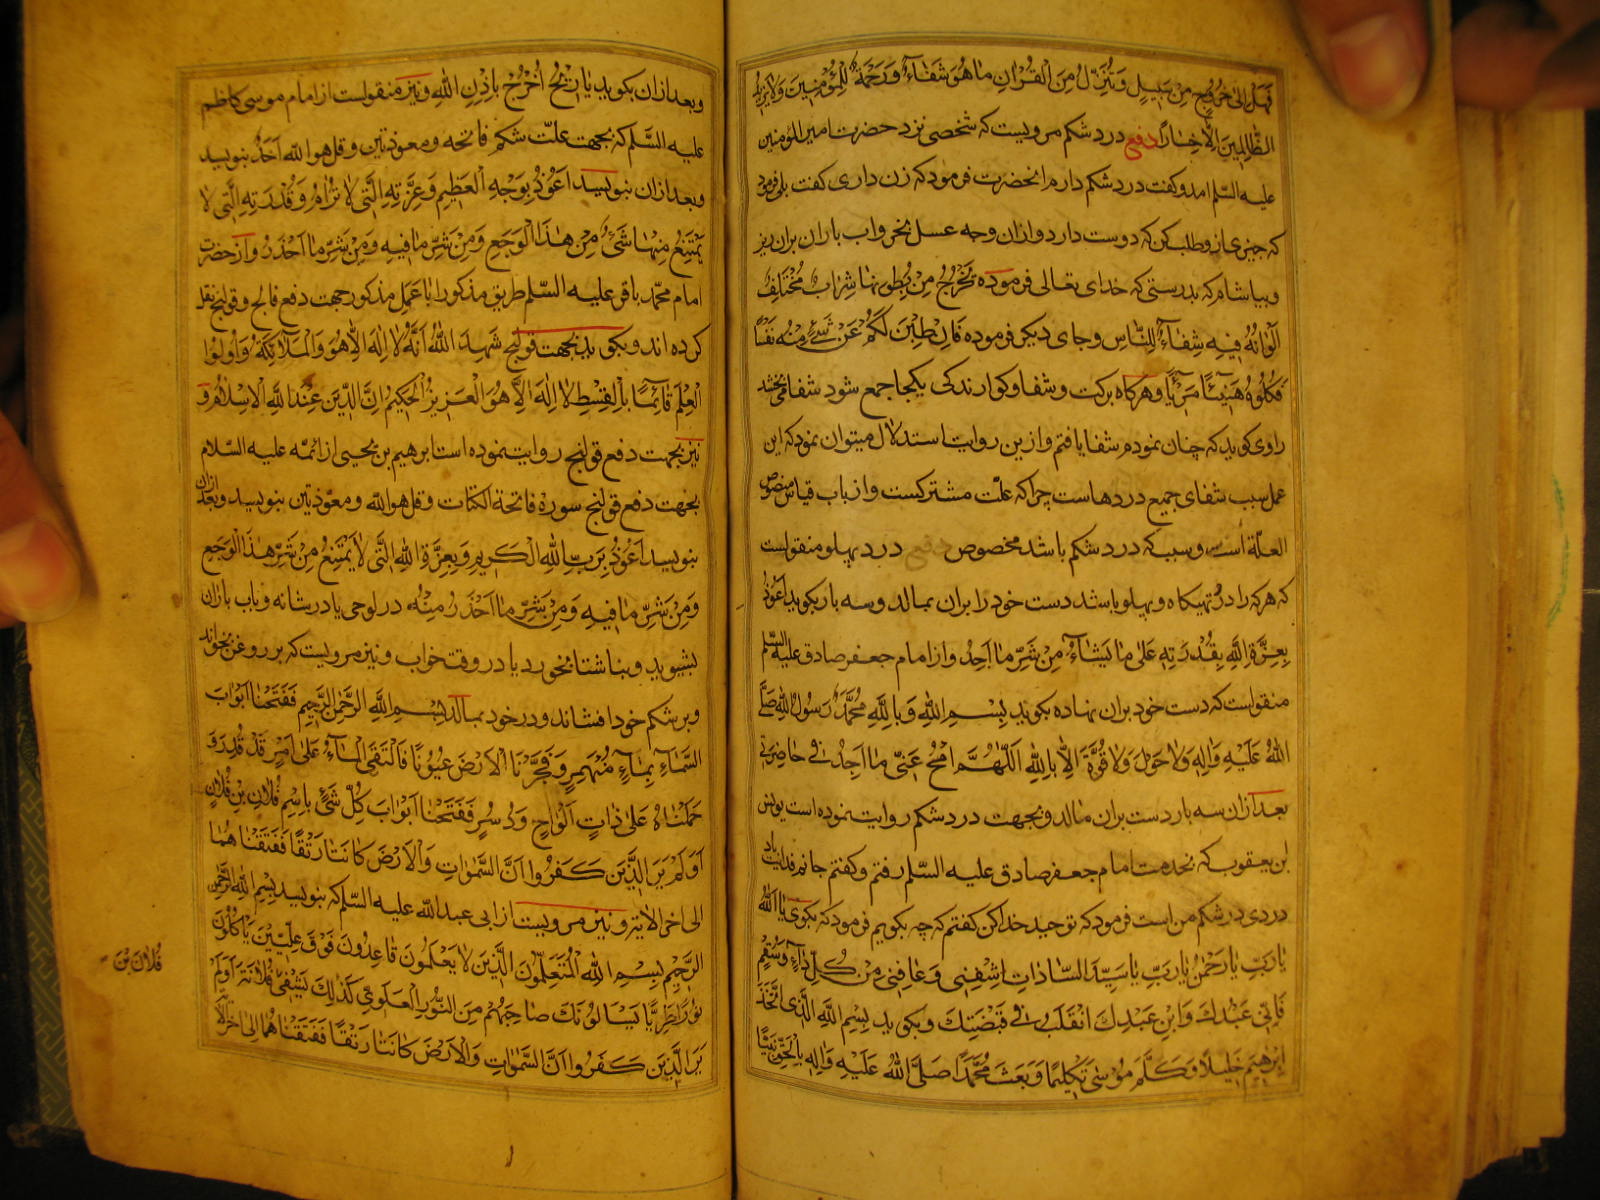 فهل الی خروج من سبیل و ننزل من القرآن ما هو شفاء و رحمة للمؤمنین ولا یزید
الظالمین الا خسارا دفع درد شکم مرویست که شخصی نزد حضرت امیر المؤمنین
علیه السلم امد و کفت درد شکم دارم انحضرت فرمود که زن داری کفت بلی فرمود
که چیزی از و طلب کن که دوست دارد و ازان وجه عسل بخر و اب باران بران ریز
و بیاشام که بدرستی که خدای تعالی فرموده یخرج من بطونها شراب مختلف
الوانه فیه شفاء للناس و جای دیکر فرموده فان طبن لکم عن شیء منه نفسا
فکلوه هنیئا مریئا و هرکاه برکت و شفا و کوارندکی یکجا جمع شود شفا می بخشد
راوی کوید که چنان نمودم شفا یافتم و ازین روایت استدلال میتوان نمود که این
عمل سبب شفای جمیع دردهاست چرا که علت مشترکست و از باب قیاس منصوص
العلة است و سبب که درد شکم باشد مخصوص دفع درد پهلو منقولست
که هرکه را در تهیکاه و پهلو باشد دست خود را بران بمالد و سه بار بکوید اعوذ
بعزة الله بقدرته علی ما یشاء من شر ما اجد و از امام جعفر صادق علیه السلم
منقولست که دست خود بران نهاده بکوید بسم الله و بالله محمد رسول الله صلی
الله علیه واله ولا حول ولا قوة الا بالله اللهم امح عنی ما اجد فی خاصرتی
بعد ازان سه بار دست بران مالد و بجهت درد شکم روایت نموده است یونس
ابن یعقوب که بخدمت امام جعفر صادق علیه السلم رفتم و کفتم جانم فدایت باد
دردی در شکم من است فرمود که توحید خدا کن کفتم که چه بکویم فرمود که بکوی یا الله
یا رب یا رحمن یا رب یا سید السادات اشفنی و عافنی من کل داء و سقم
فانی عبدک وابن عبدک انقلب فی قبضتک و بکوید بسم الله الذی اتخذ
ابرهیم خلیلا و کلم موسی تکلیما و بعث محمدا صلی الله علیه واله بالحق نبیا
و بعد ازان بکوید یا ریح اخرج باذن الله و نیز منقولست از امام موسی کاظم
علیه السلم که بجهت علت شکم فاتحه و معوذتین و قل هو الله احد بنویسد
و بعد ازان بنویسد اعوذ بوجه العظیم و عزته التی لا ترام و قدرته التی لا
یمتنع منها شیء من هذا الوجع و من شر ما فیه و من شر ما احذر و از حضرت
امام محمد باقر علیه السلم طریق مذکور را با عمل مذکور جهت دفع فالج و قولنج نقل
کرده اند و بکوید بجهت قولنج شهد الله انه لا اله الا هو والملائکة واولوا
العلم قائما بالقسط لا اله الا هو العزیز الحکیم ان الدین عند الله الاسلام و
نیز بجهت دفع قولنج روایت نموده است ابرهیم بن یحیی از ائمه علیه السلام
بجهت دفع قولنج سوره فاتحة الکتاب و قل هو الله و معوذتین بنویسد و بعد ازان
بنویسد اعوذ برب الله الکریم و بعزة الله التی لا یمتنع من شر هذا الوجع
و من شر ما فیه و من شر ما احذر منه در لوحی یا در شانه و باب باران
بشوید و بناشتا بخورد یا در وقت خواب و نیز مرویست که بر روغن بخواند
و بر شکم خود افشاند و در خود بمالد بسم الله الرحمن الرحیم ففتحنا ابواب
السماء بماء منهمر و فجرنا الارض عیونا فالتقی الماء علی امر قد قدر و
حملناه علی ذات الواح و دسر ففتحنا ابواب کل شیء باسم فلان بن فلان
اولم یر الذین کفروا ان السموات والارض کانتا رتقا ففتقناهما
الی اخر الایة و نیز مرویست از ابی عبدالله علیه السلم که بنویسد بسم الله الرحمن
الرحیم بسم الله المتعلمون الذین لا یعلمون قاعدون فوق علیین یاکلون
نورا طریا یسالونک صاحبهم من النور العلوی کذلک یشفی فلانة اولم
یر الذین کفروا ان السموات والارض کانتا رتقا ففتقناهما الی اخر الآ
فلان بن